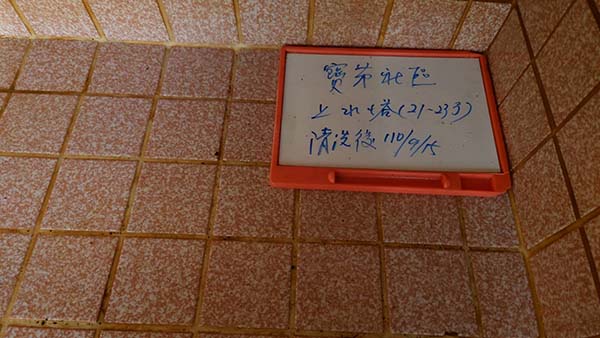 寶第社區
上水塔(21-23号)
清洗後 110/9/15